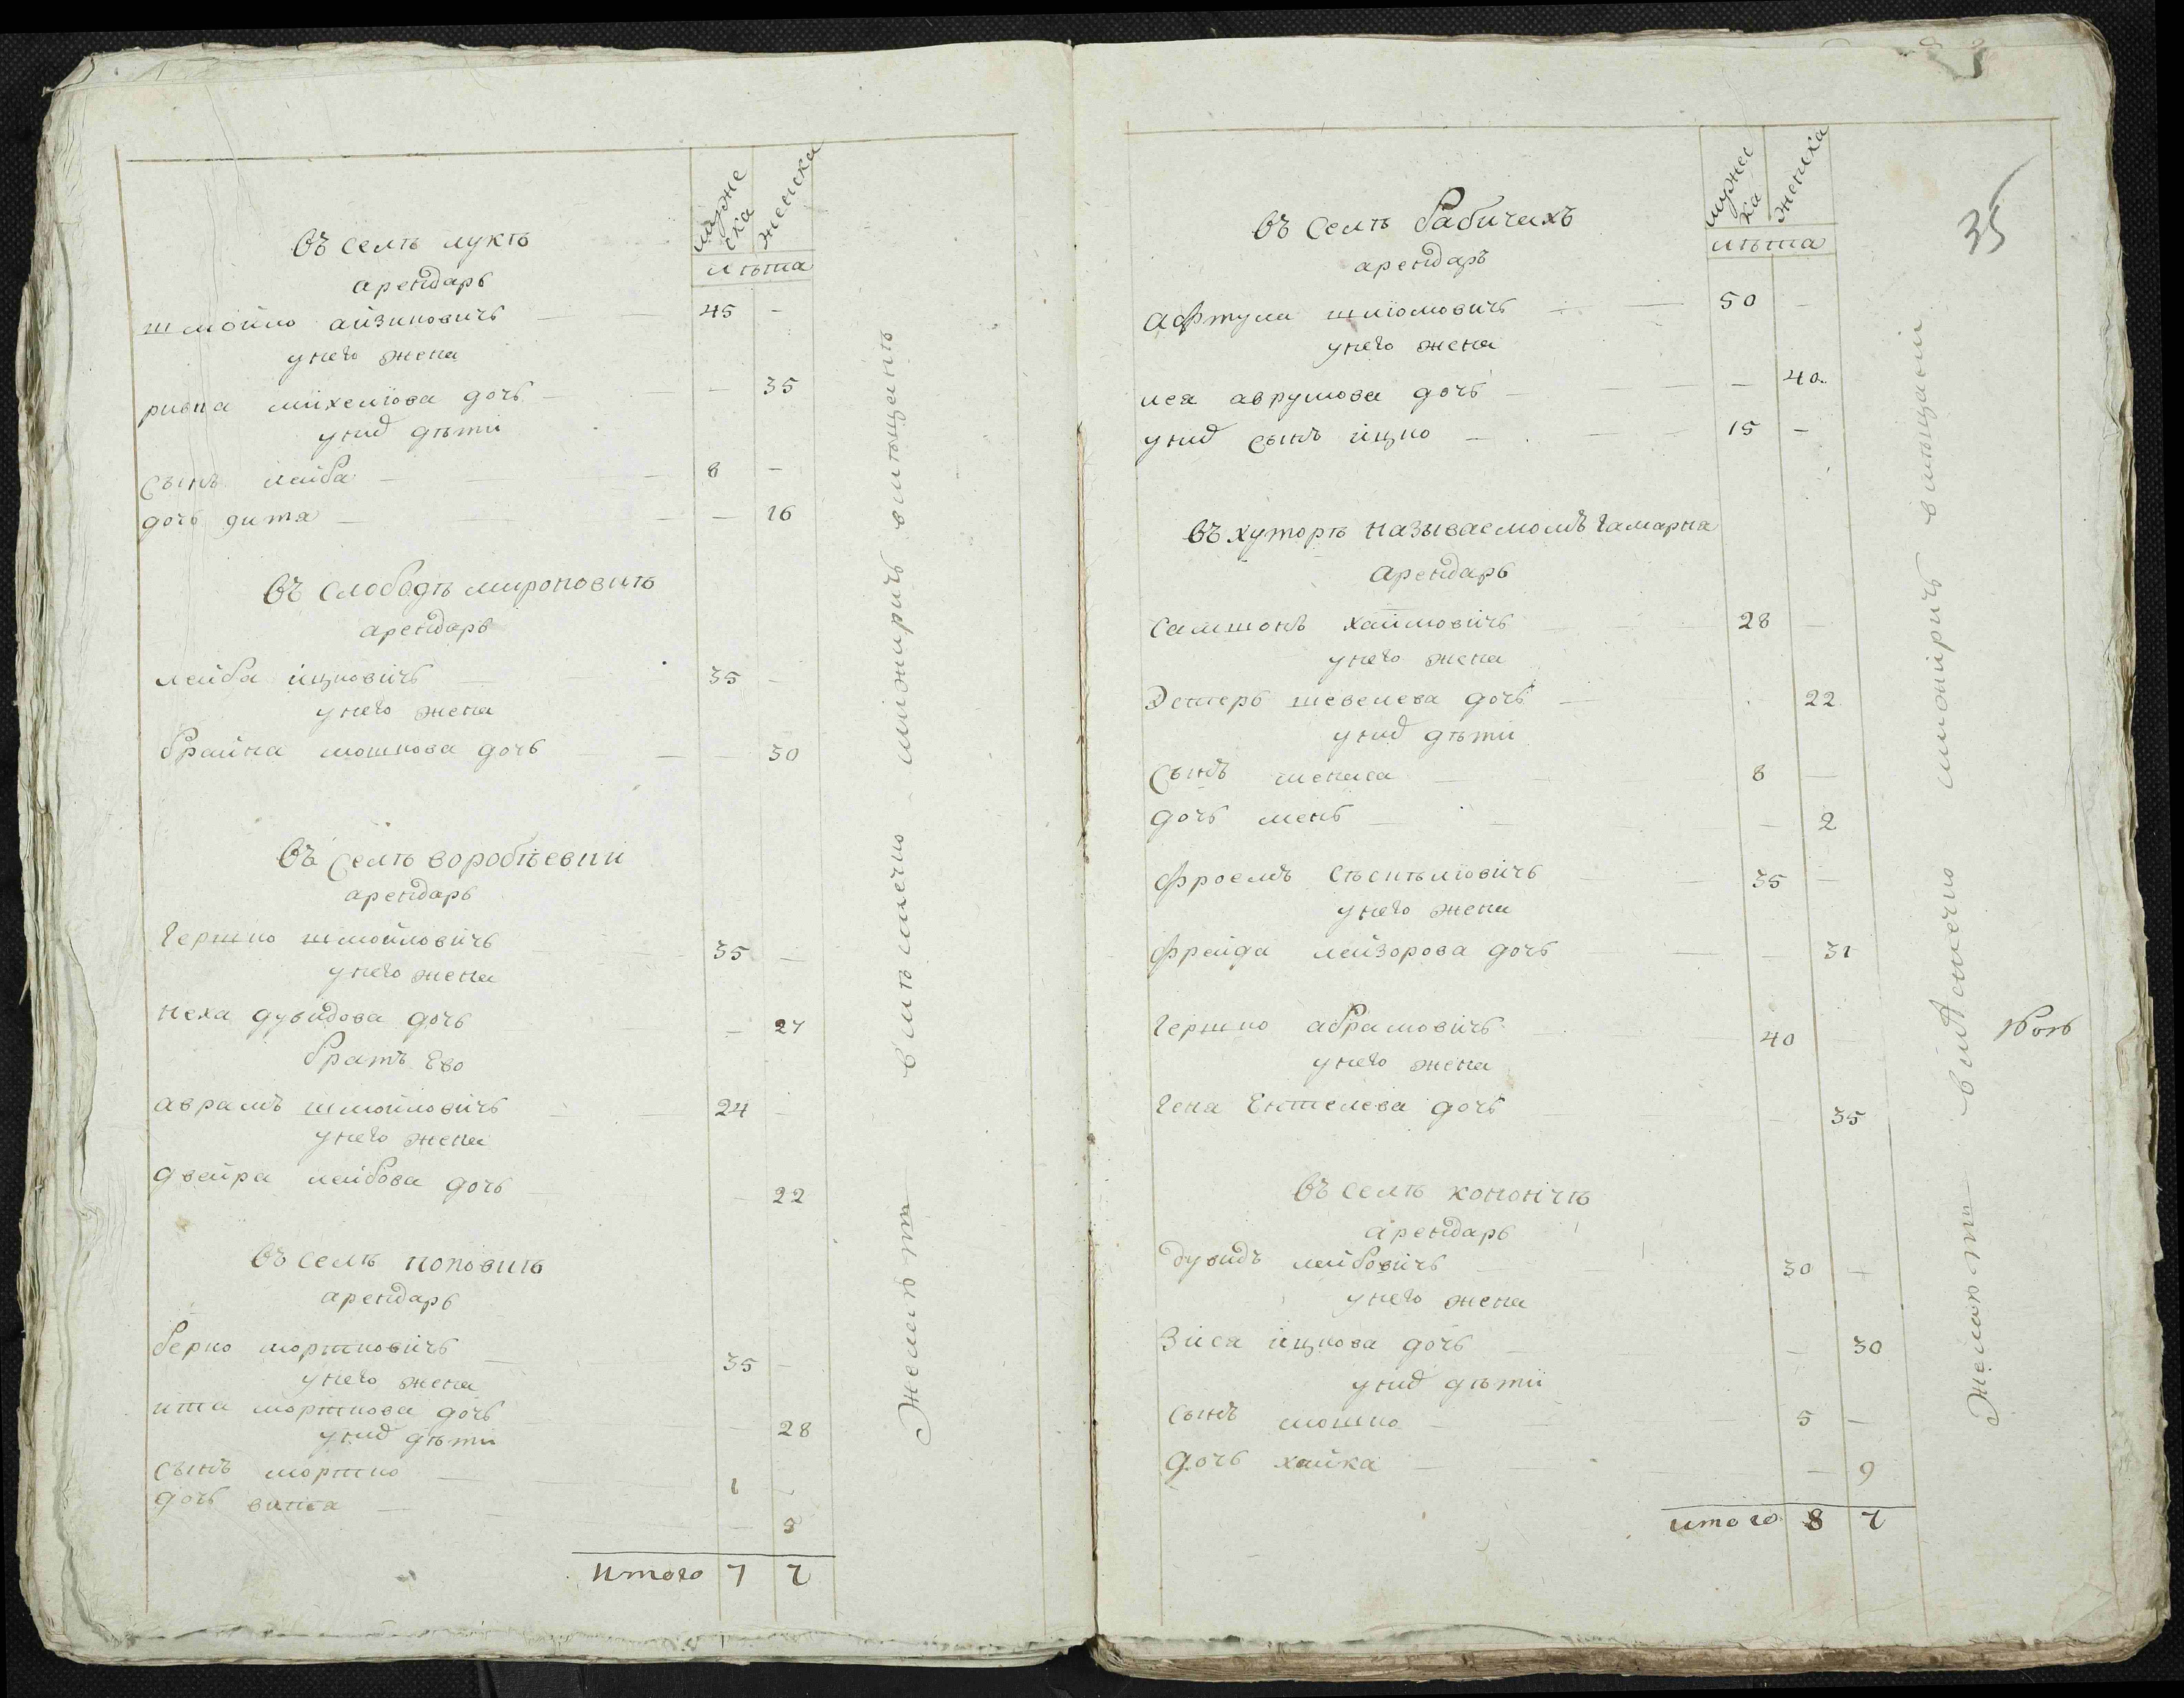 мужеска
женска
лѣта
Въ селѣ лукѣ
арендаръ
шмойло айзиковичъ — — 45 -
унего жена
ривка михелюва дочь — — 35
унихъ дѣти
сынъ лейба — — 8 -
дочь дитя — — 16
Въ слободѣ мироновкѣ
арендаръ
лейба ицковичъ — 35 -
унего жена
брайна мошкова дочь — — 30
Въ селѣ воробіевки
арендаръ
гершко шмойловичъ — 35 -
унего жена
неха дувидова дочь — 27
братъ Ево
аврамъ шмойловичъ — 24 -
унего жена
двейра лейбова дочь — 22
Въ селѣ поповкѣ
арендаръ
берко мортковичъ — 35 -
унего жена
ита морткова дочь — 28
унихъ дѣти
сынъ мортко — 1 -
дочь — 5
итого 7 7
Желаютъ в мѣстечко межиричъ в мѣщанѣ
35
мужеска
женска
лѣта
Въ селѣ бабичахъ
арендаръ
Афтули шліомовичъ — 50 -
унего жена
лея аврумова дочь — — 40
унихъ сынъ ицко — — 15 -
Въ хуторѣ называемомъ гамарня
арендаръ
самшонъ хаймовичъ — 28 -
унего жена
Эстеръ шевелева дочь — 22
унихъ дѣти
сынъ — 8 —
дочь мень — — 2
фроемъ — 35 —
унего жена
фрейда лейзорова дочь — — 31
гершко абрамовичъ — 40 —
унего жена
гена Ентелева дочь — — 35
Въ селѣ конончѣ
арендаръ
дувидъ лейбовичъ — 30 —
унего жена
Зися ицкова дочь — — 30
унихъ дѣти
сынъ мошко — 5 —
дочь хайка — — 9
итого 8 7
Желаютъ в мѣстечко межиричъ в мѣщаній